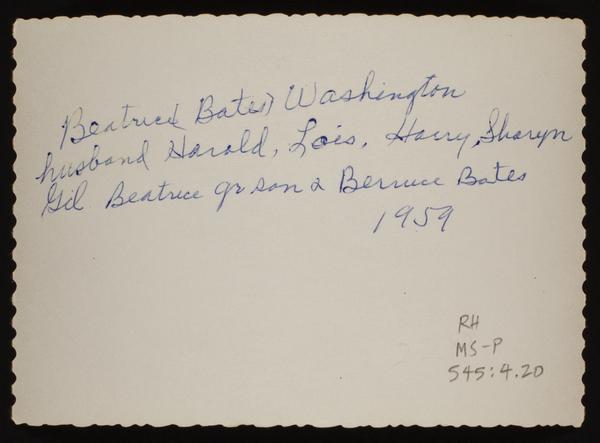 Beatrice (Bates) Washington
husband Harold, Lois, Harry, Sharyn
Gil Beatrice gr son & Bernice Bates
1959
RH
MS-P
545:4.20